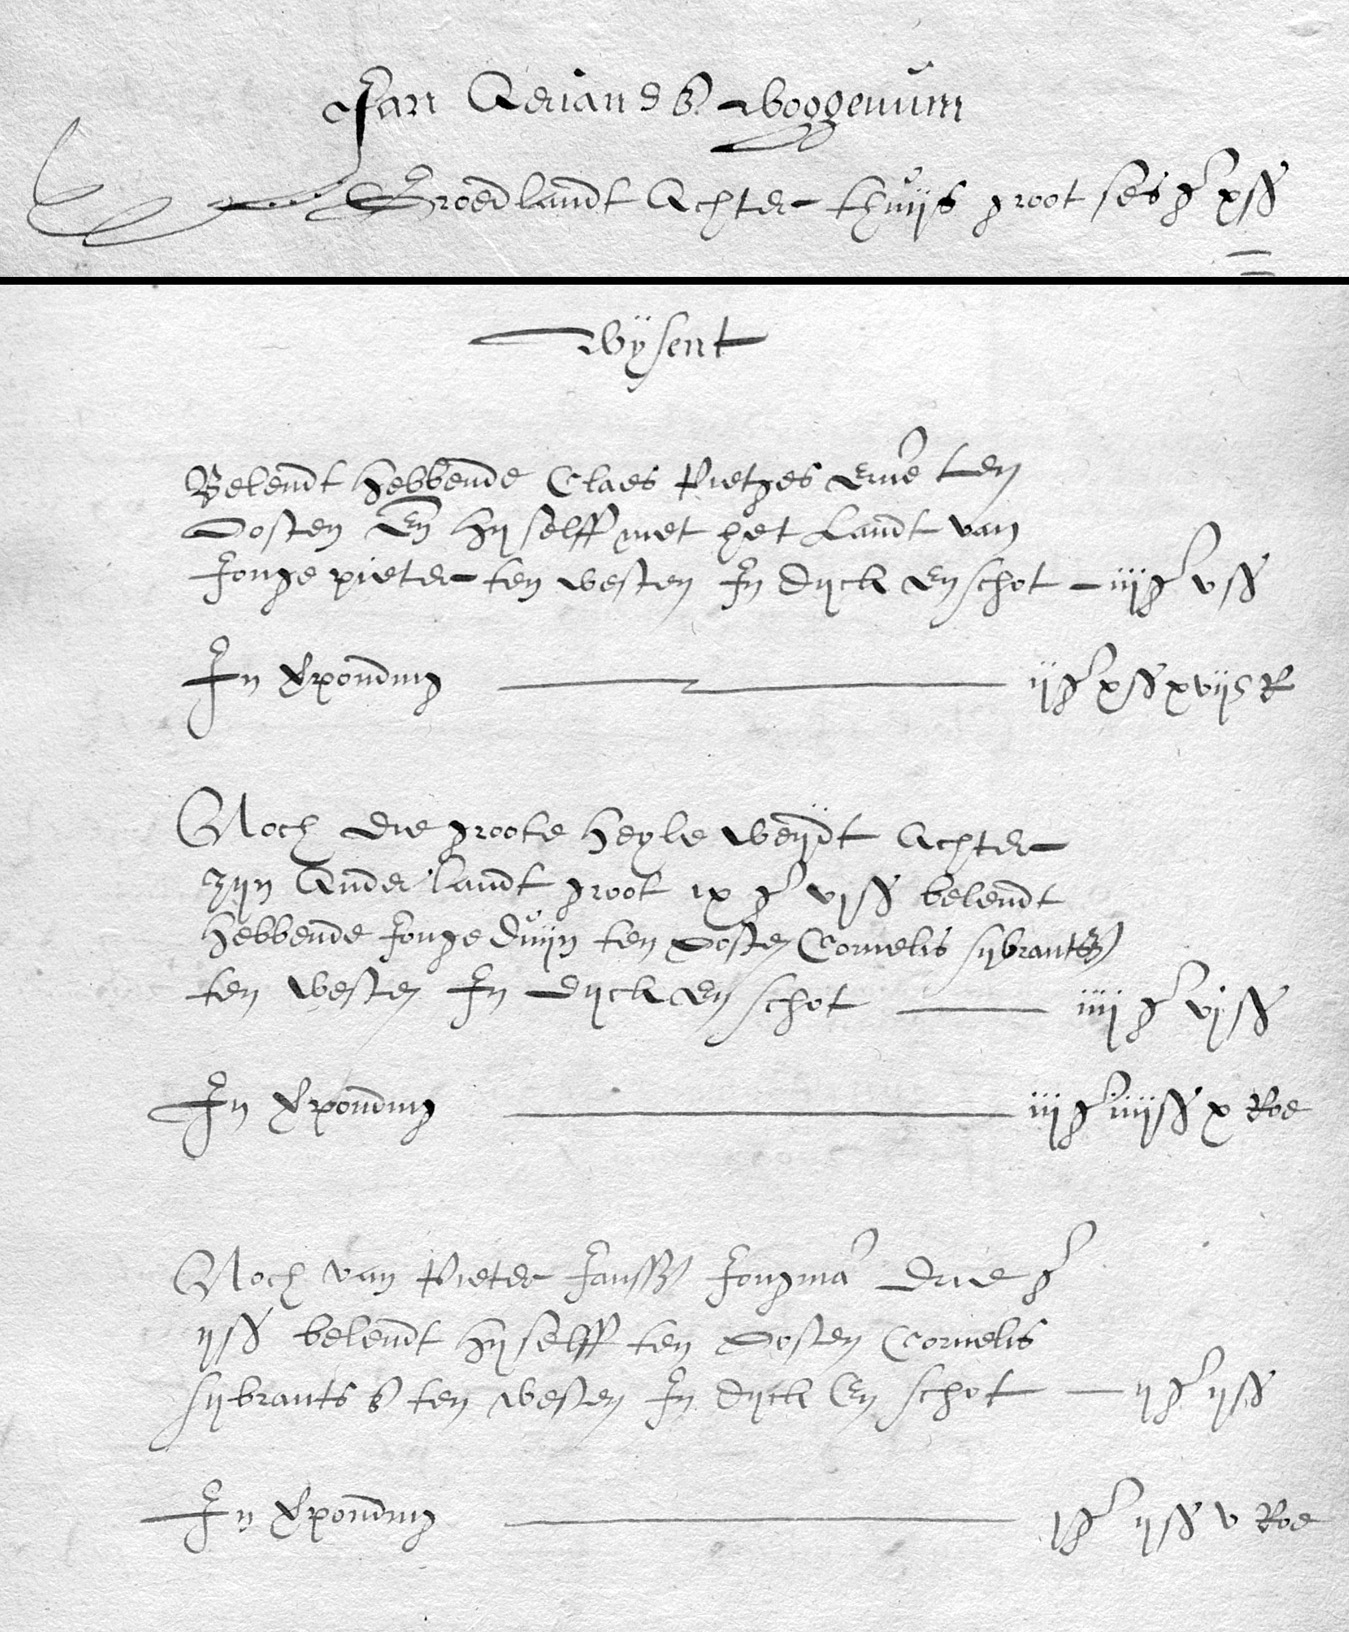 Jan Adriands Woggenum
Broedlandt Achter thuijs groot ses g xss
Wÿsent
Belendt hebbende Claes Pietges Erve ten
Oosten En hij selff met het Landt van
Jonge pieter ten westen In dijck En schot — iiij g v ss
In Exponding ij g x ss xvij R
Noch die groote heyle weijdt Achter
zijn Ander landt groot ix g vj ss belendt
hebbende Jonge duijn ten Oosten Cornelis sijbrants
ten westen In dijck En schot — iiij g vj ss
In Exponding iij g iiij ss x Roe
Noch van Pieter Janssz Jongma drie g
ij ss belendt hij selff ten Oosten Cornelis
sijbrants ten westen In dijck En schot — ij g ij ss
In Exponding j g ij ss v Roe